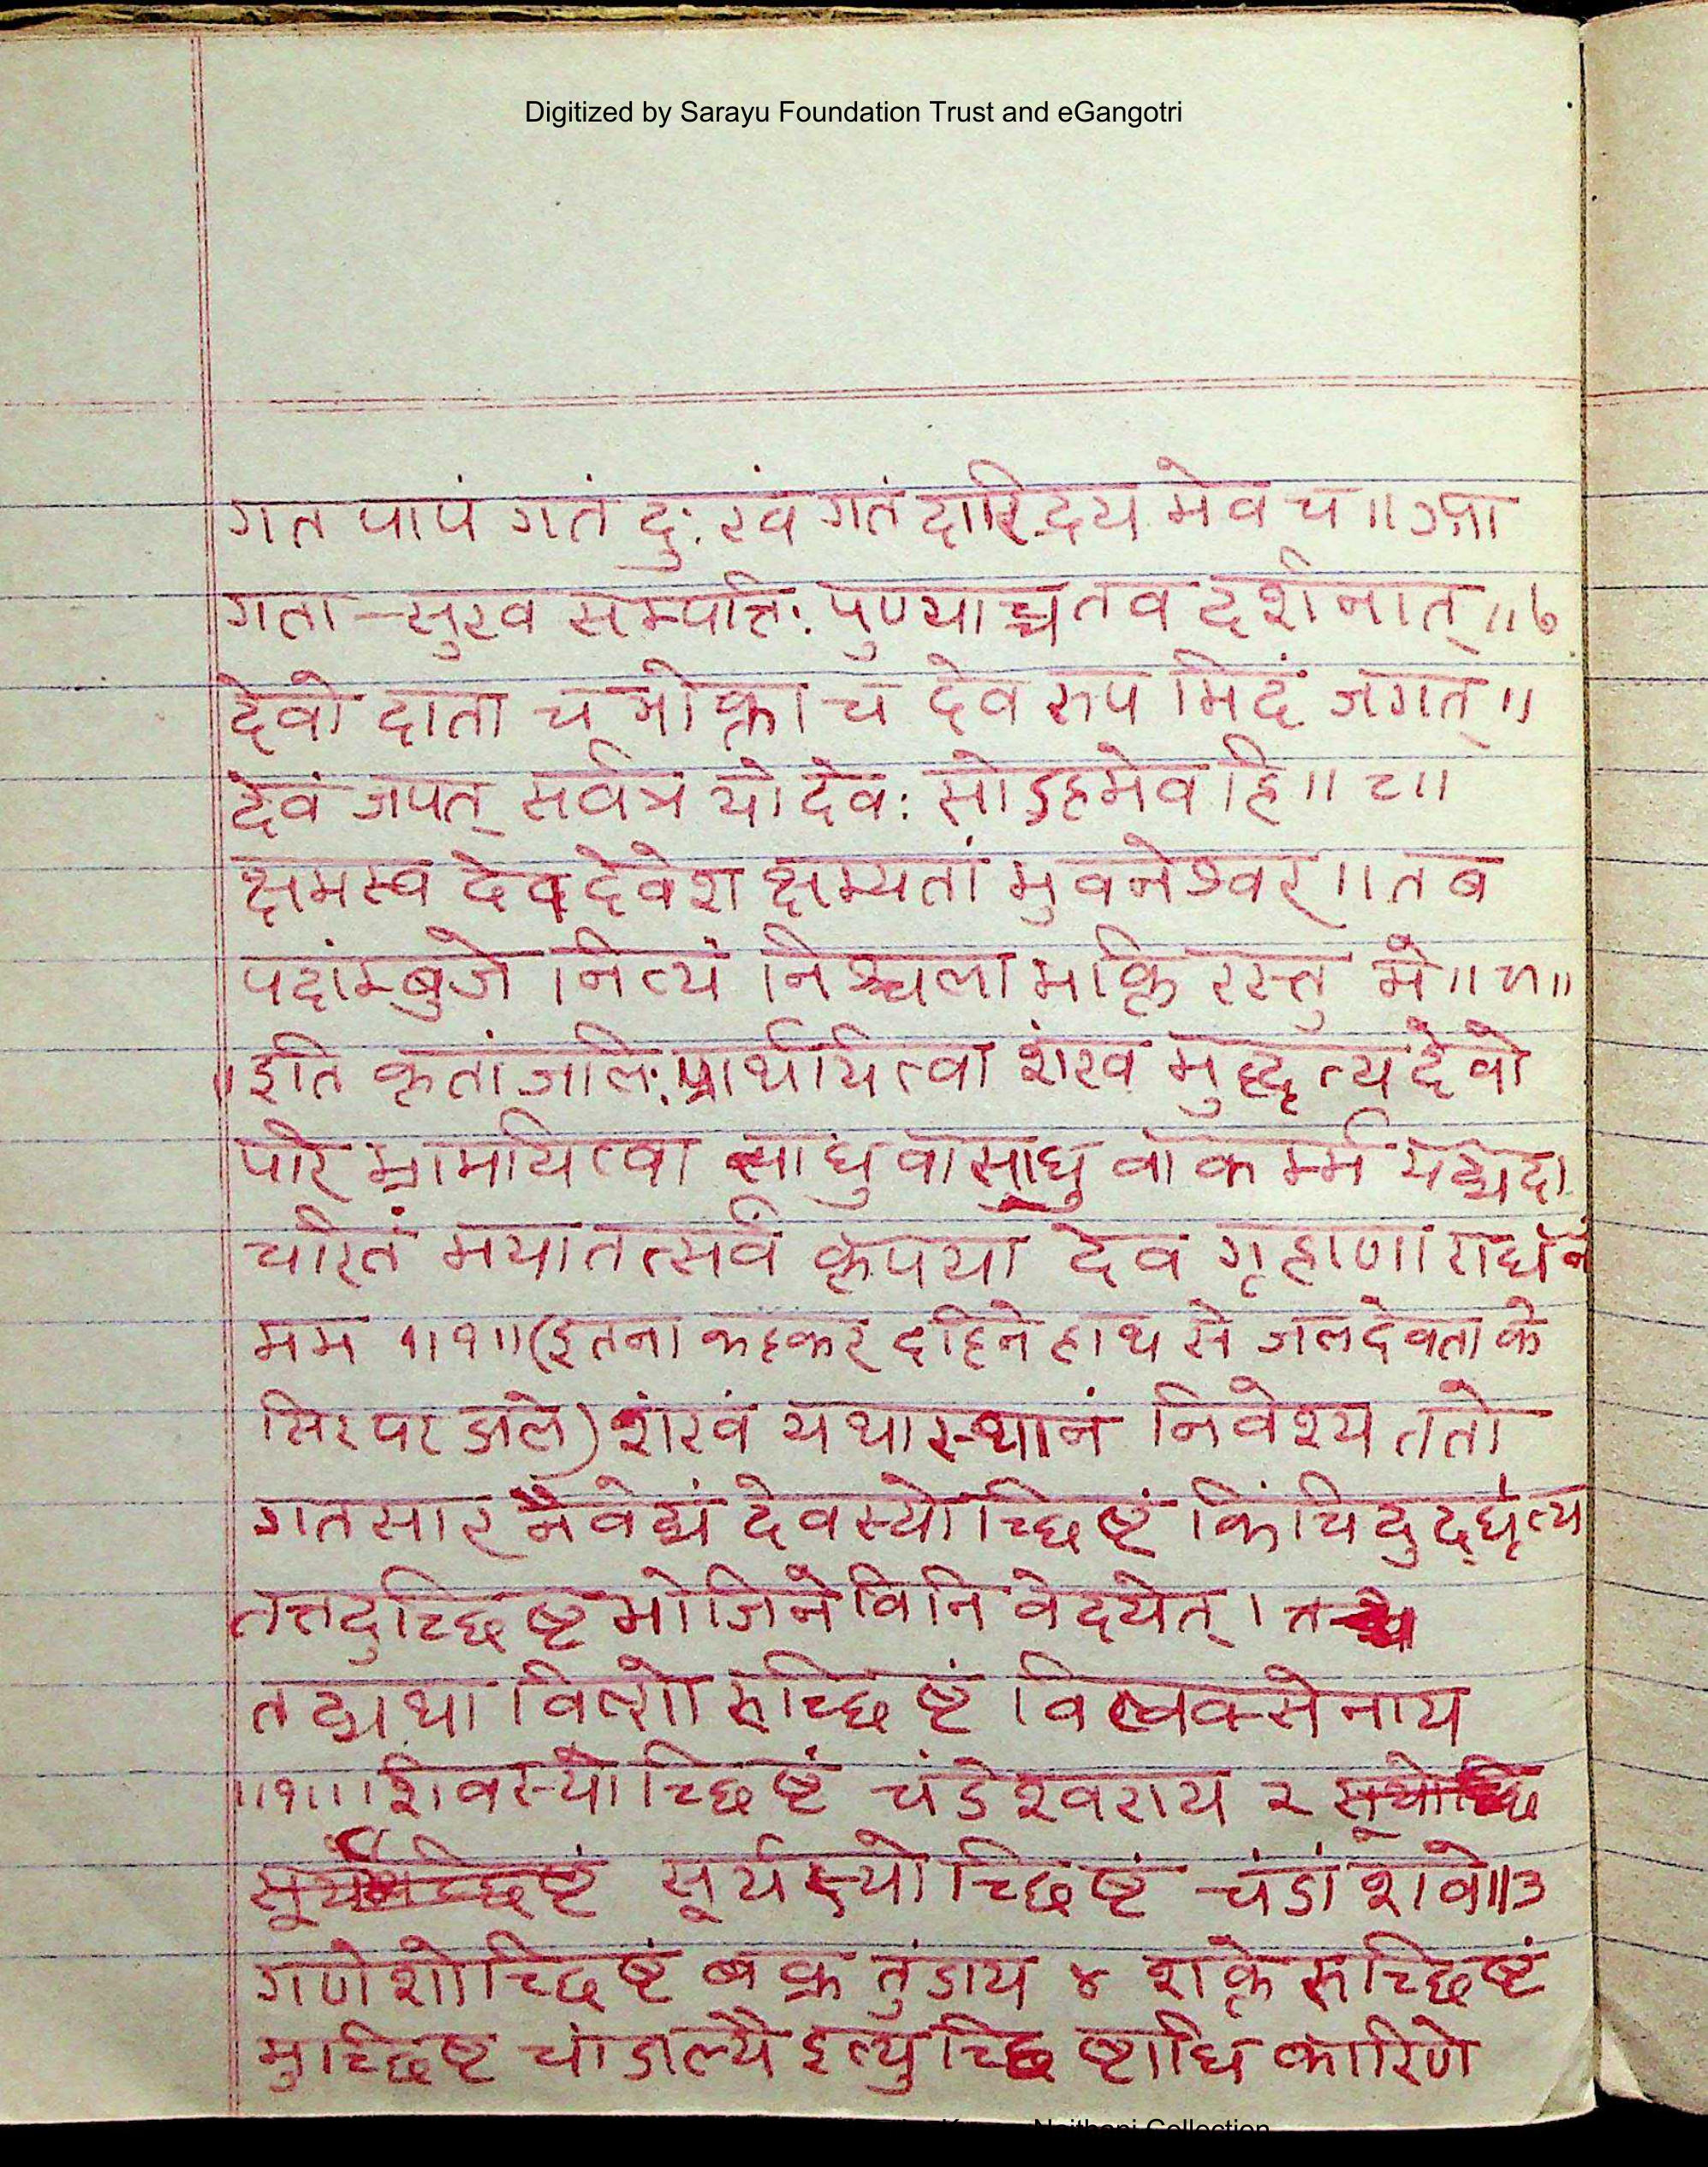 Digitized by Sarayu Foundation Trust and eGangotri
गत पापं गतं दुःखं गतं दारिद्रय मेव च ॥ आ
गता सुख सम्पत्तिः पुण्याच्च तव दर्शनात् ॥७
देवो दाता च भोक्ता च देव रुप मिदं जगत् ॥
देवं जपत् सर्वत्र यो देवः सोऽहमेव हि ॥८॥
क्षमस्व देव देवेश क्षम्यतां भुवनेश्वर ॥ तब
पदांम्बुजे नित्यं निश्चला भक्ति रस्तु मे ॥९॥
इति कृतांजलिः प्रार्थयित्वा शंख मुद्धृत्य देवो
परि भ्रामयित्वा साधु वासाधु वा कर्म्म यद्यदा
चरितं मया तत्सर्वं कृपया देव गृहाणाराधनं
मम ॥१॥ (इतना कहकर दहिने हाथ से जल देवता के
सिर पर डाले) शंखं यथास्थानं निवेश्य ततो
गतसार नैवेद्यं देवस्योच्छिष्टं किंचिदुद्धृत्य
तत्तदुच्छिष्ट भोजिने विनि वेदयेत् ।
तद्यथा विष्णो रुच्छिष्टं विष्वक्सेनाय
॥१॥ शिवस्योच्छिष्टं चंडेश्वराय २
सूर्यस्योच्छिष्टं चंडांशवे ॥३
गणेशोच्छिष्टं बक्र तुंडाय ४ शक्ते रुच्छिष्टं
मुच्छिष्ट चांडाल्यै इत्युच्छिष्टाधि कारिणे
Naithani Collection